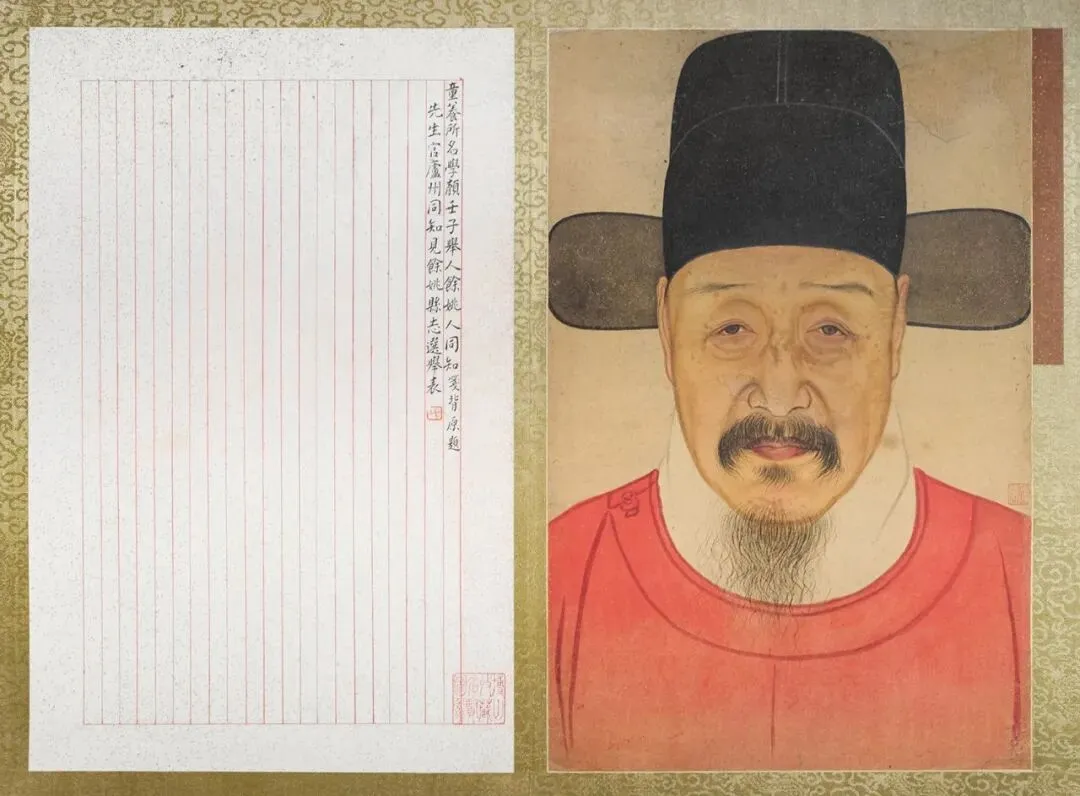 童養所名學顏壬子舉人餘姚人同知箋背原題
先生官廬州同知見餘姚縣志選舉表